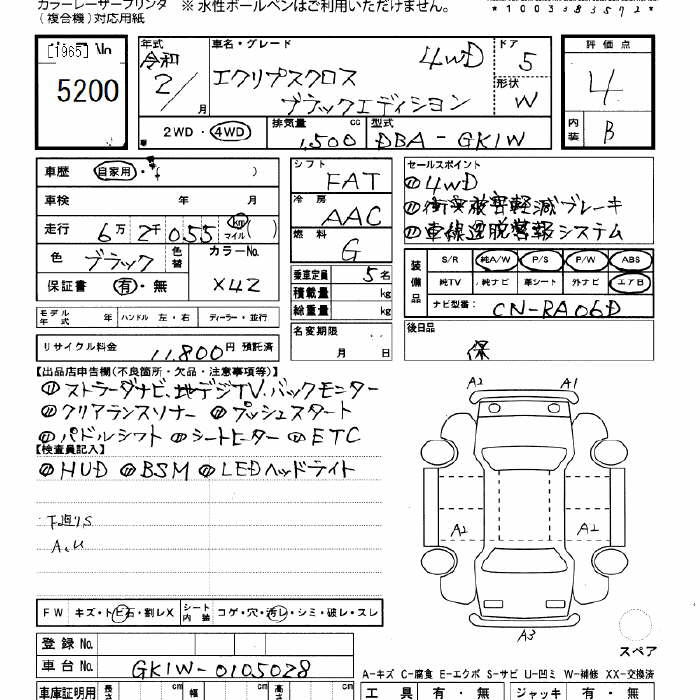 カラーレーザープリンタ ※ 水性ボールペンはご利用いただけません。
(複合機)対応用紙
*1003383572*
[1965]
5200
年式 車名・グレード ドア 評価点
令和 2/ 月
エクリプスクロス 4WD 5
形状
ブラックエディション W
4
内装 B
2WD・4WD 排気量 1,500 cc 型式 DBA-GK1W
車歴 自家用・ )
車検 年 月
走行 6万2千055 km マイル( )
色 ブラック 色替 カラーNo.
保証書 有・無 X42
モデル年式 年 ハンドル 左・右 ディーラー・並行
リサイクル料金 11,800円 預託済
シフト FAT
冷房 AAC
燃料 G
乗車定員 5名
積載量 kg
総重量 kg
名変期限
月 日
セールスポイント
①4WD
②衝突被害軽減ブレーキ
③車線逸脱警報システム
装備品 S/R 純A/W P/S P/W ABS
純TV 純ナビ 革シート 外ナビ エアB
ナビ型番: CN-RA06D
後日品
保
【出品店申告欄(不良箇所・欠品・注意事項等)】
ストラーダナビ、地デジTV、バックモニター
クリアランスソナー プッシュスタート
パドルシフト シートヒーター ETC
【検査員記入】
HUD BSM LEDヘッドライト
下廻りS
A.U
A2 A1
A2 A2
A3
スペア
FW キズ・トビ石・割レX シート内装 コゲ・穴・汚レ・シミ・破レ・スレ
登録No.
車台No. GK1W-0105028
A-キズ C-腐食 E-エクボ S-サビ U-凹ミ W-補修 XX-交換済
車庫証明用 長さ cm 幅 cm 高さ cm 工具 有・無 ジャッキ 有・無